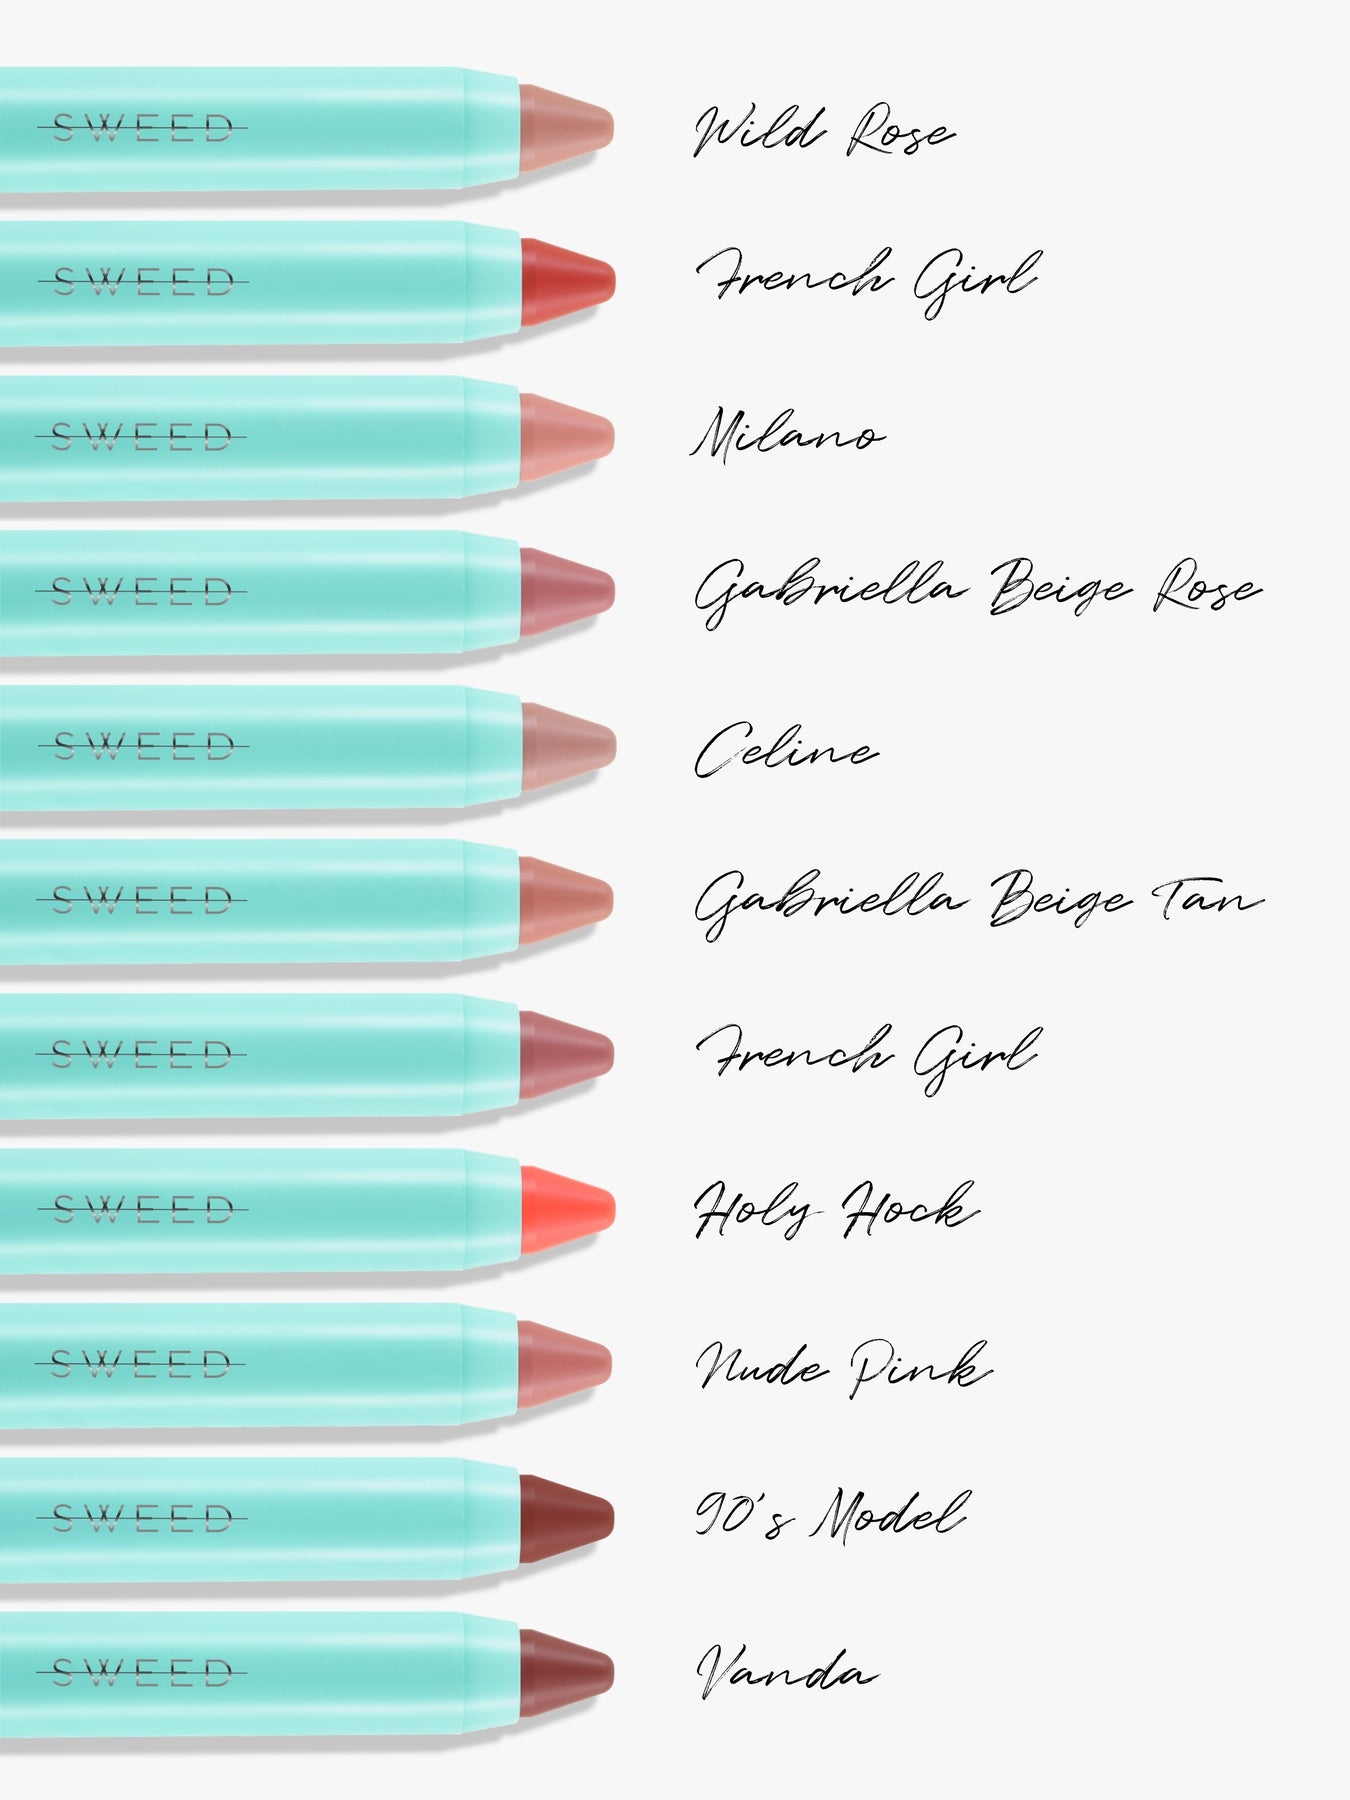 SWEED Wild Rose
SWEED French Girl
SWEED Milano
SWEED Gabriella Beige Rose
SWEED Celine
SWEED Gabriella Beige Tan
SWEED French Girl
SWEED Holy Hock
SWEED Nude Pink
SWEED 90's Model
SWEED Vanda